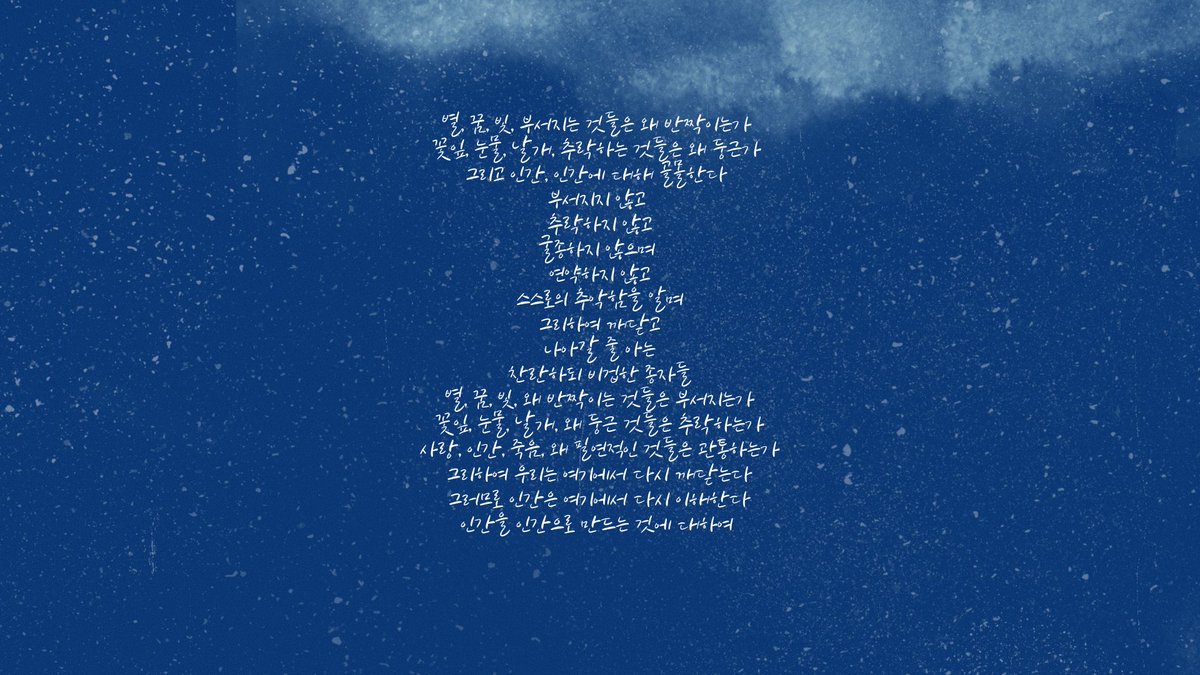 별, 꿈, 빛, 부서지는 것들은 왜 반짝이는가
꽃잎, 눈물, 날개, 추락하는 것들은 왜 둥근가
그리고 인간, 인간에 대해 골몰한다
부서지지 않고
추락하지 않고
굴종하지 않으며
연약하지 않고
스스로의 추악함을 알며
그리하여 깨닫고
나아갈 줄 아는
찬란하되 비겁한 종자들
별, 꿈, 빛, 왜 반짝이는 것들은 부서지는가
꽃잎, 눈물, 날개, 왜 둥근 것들은 추락하는가
사랑, 인간, 죽음, 왜 필연적인 것들은 관통하는가
그리하여 우리는 여기에서 다시 깨닫는다
그러므로 인간은 여기에서 다시 이해한다
인간을 인간으로 만드는 것에 대하여